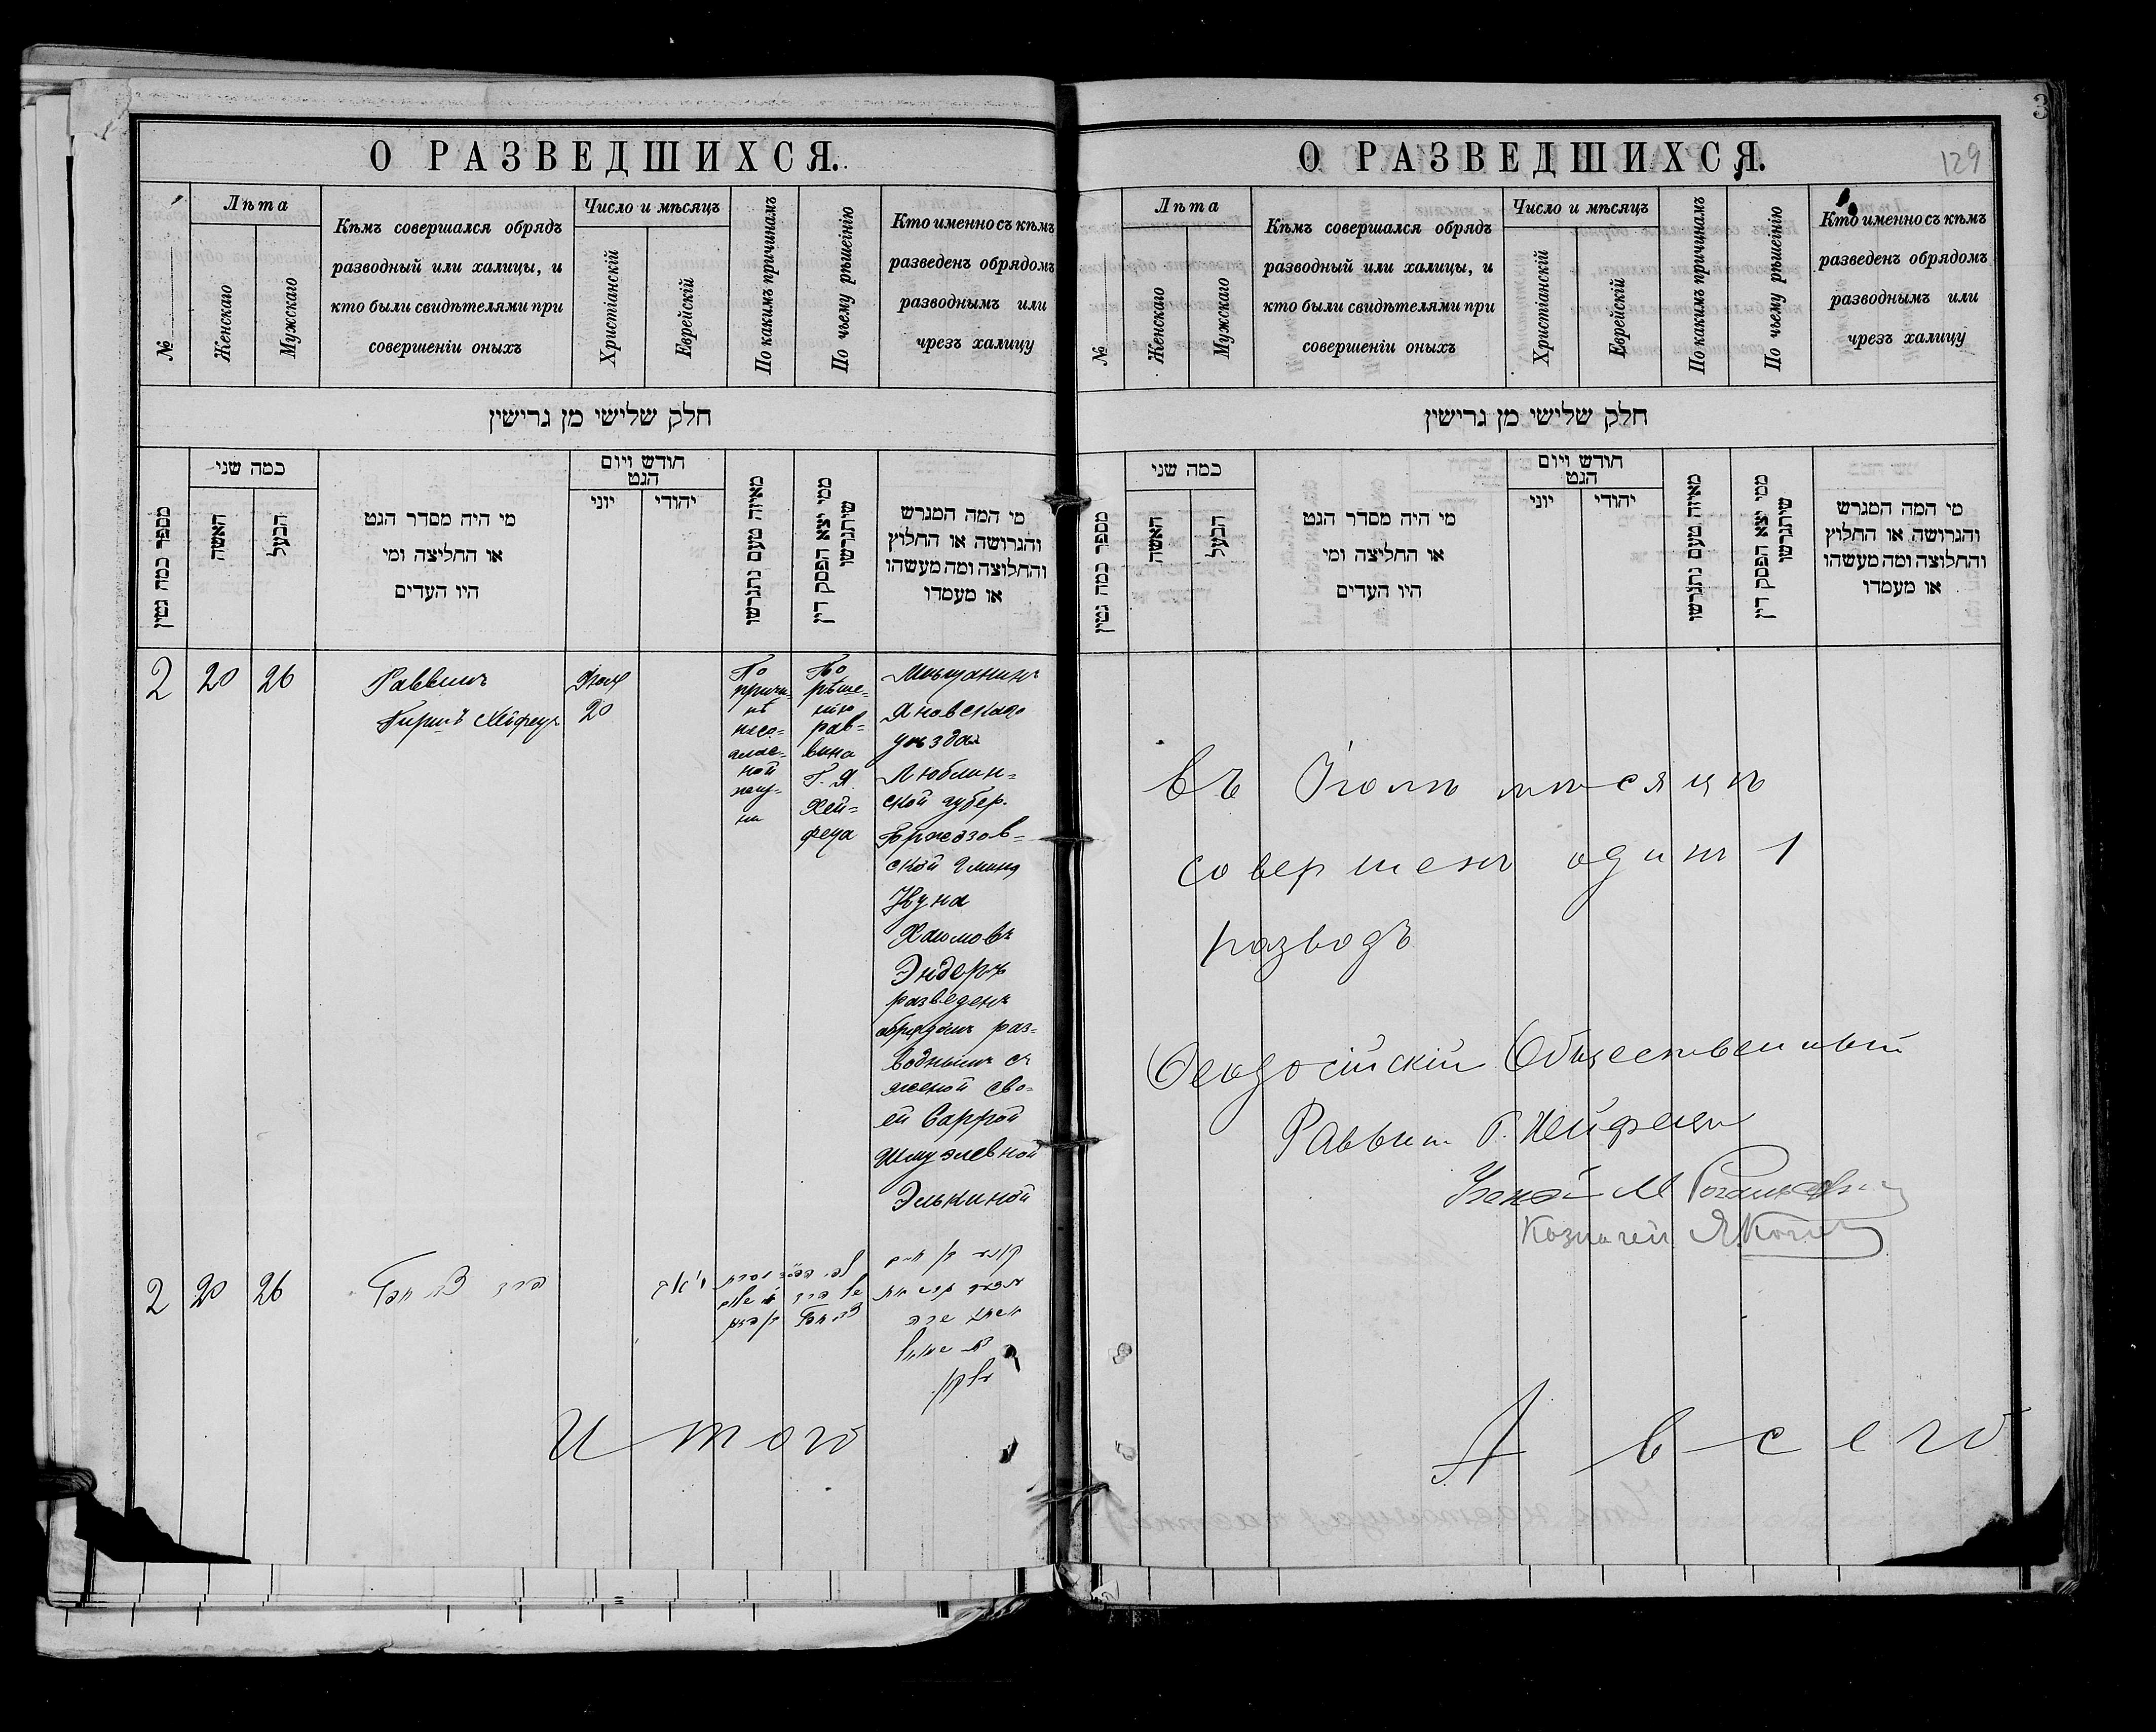 О РАЗВЕДШИХСЯ.
№
Лѣта
Женскаго
Мужскаго
Кѣмъ совершался обрядъ
разводный или халицы, и
кто были свидѣтелями при
совершеніи оныхъ
Число и мѣсяцъ
Христіанскій
Еврейскій
По какимъ причинамъ
По чьему рѣшеінію
Кто именно съ кѣмъ
разведенъ обрядомъ
разводнымъ или
чрезъ халицу
חלק שלישי מן גרישין
מספר כמה גטין
כמה שני
האשה
הבעל
מי היה מסדר הגט
או החליצה ומי
היו העדים
חודש ויום
הגט
יוני
יהודי
מאיזה טעם נתגרשו
ממי יצא הפסק דין
שיתגרשו
מי המה המגרש
והגרושה או החלוץ
והחלוצה ומה מעשהו
או מעמדו
2
20
26
Раввинъ
Гиршъ Хейфецъ
20
По
причи-
нѣ
несо-
глас-
ной
жиз-
ни
По
рѣше-
нію
рав-
вина
Г. Я
Хей-
феца
Мѣщанинъ
Яновскаго
уѣзда
Люблин-
ской губер.
ской гмины
Хаимовъ
Эндеръ
разведенъ
обрядомъ раз-
воднымъ съ
женой сво-
ей Саррой
Шмуэлевной
Элькиной
2
20
26
Итого
3
129
О РАЗВЕДШИХСЯ.
№
Лѣта
Женскаго
Мужскаго
Кѣмъ совершался обрядъ
разводный или халицы, и
кто были свидѣтелями при
совершеніи оныхъ
Число и мѣсяцъ
Христіанскій
Еврейскій
По какимъ причинамъ
По чьему рѣшеінію
Кто именно съ кѣмъ
разведенъ обрядомъ
разводнымъ или
чрезъ халицу
חלק שלישי מן גרישין
מספר כמה גטין
כמה שני
האשה
הבעל
מי היה מסדר הגט
או החליצה ומי
היו העדים
חודש ויום
הגט
יוני
יהודי
מאיזה טעם נתגרשו
ממי יצא הפסק דין
שיתגרשו
מי המה המגרש
והגרושה או החלוץ
והחלוצה ומה מעשהו
או מעמדו
Въ Іюлѣ мѣсяцѣ
совершенъ одинъ 1
разводъ
Ѳеодосійскій Общественный
Раввинъ Г. Хейфецъ
Казначей Я.
А всего